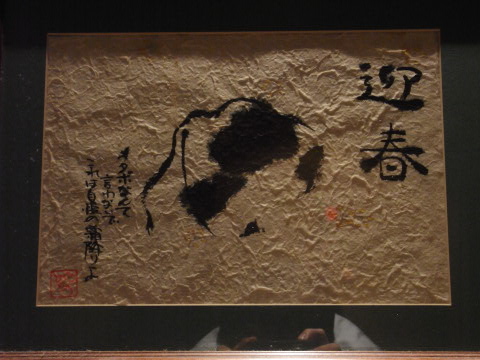 迎春
メタボなんて
言わないで
これは自慢の霜降りよ